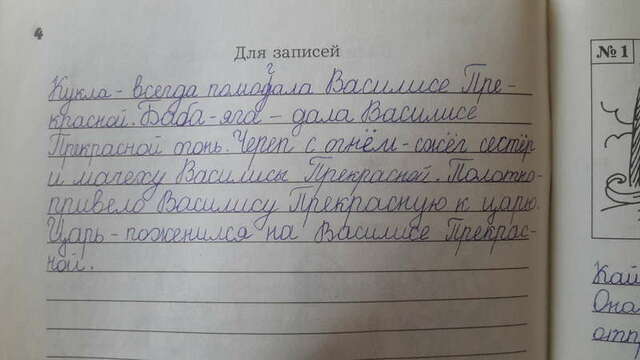 4
Для записей
Кукла - всегда помогала Василисе Пре-
красной. Баба-яга - дала Василисе
Прекрасной огонь. Череп с огнём - сжёг сестёр
и мачеху Василисы Прекрасной. Полотно -
привело Василису Прекрасную к царю.
Царь - поженился на Василисе Прекрас-
ной.
№ 1
Кай
Она
отпр